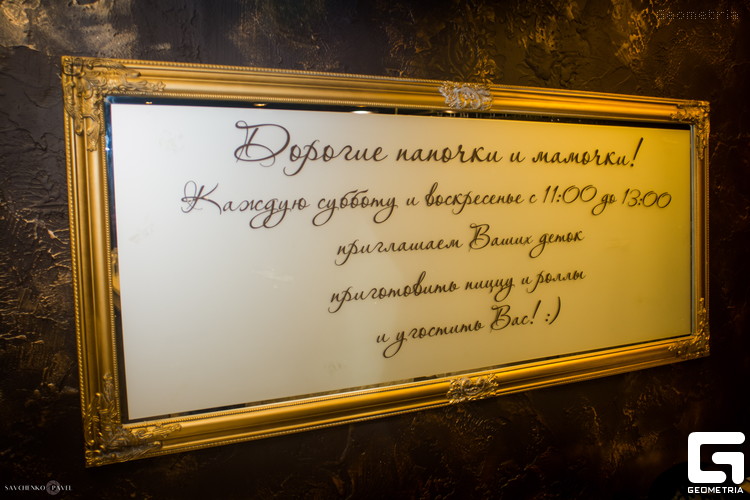 Geometria
Дорогие папочки и мамочки!
Каждую субботу и воскресенье с 11:00 до 13:00
приглашаем Ваших деток
приготовить пиццу и роллы
и угостить Вас! :)
SAVCHENKO PAVEL
GEOMETRIA